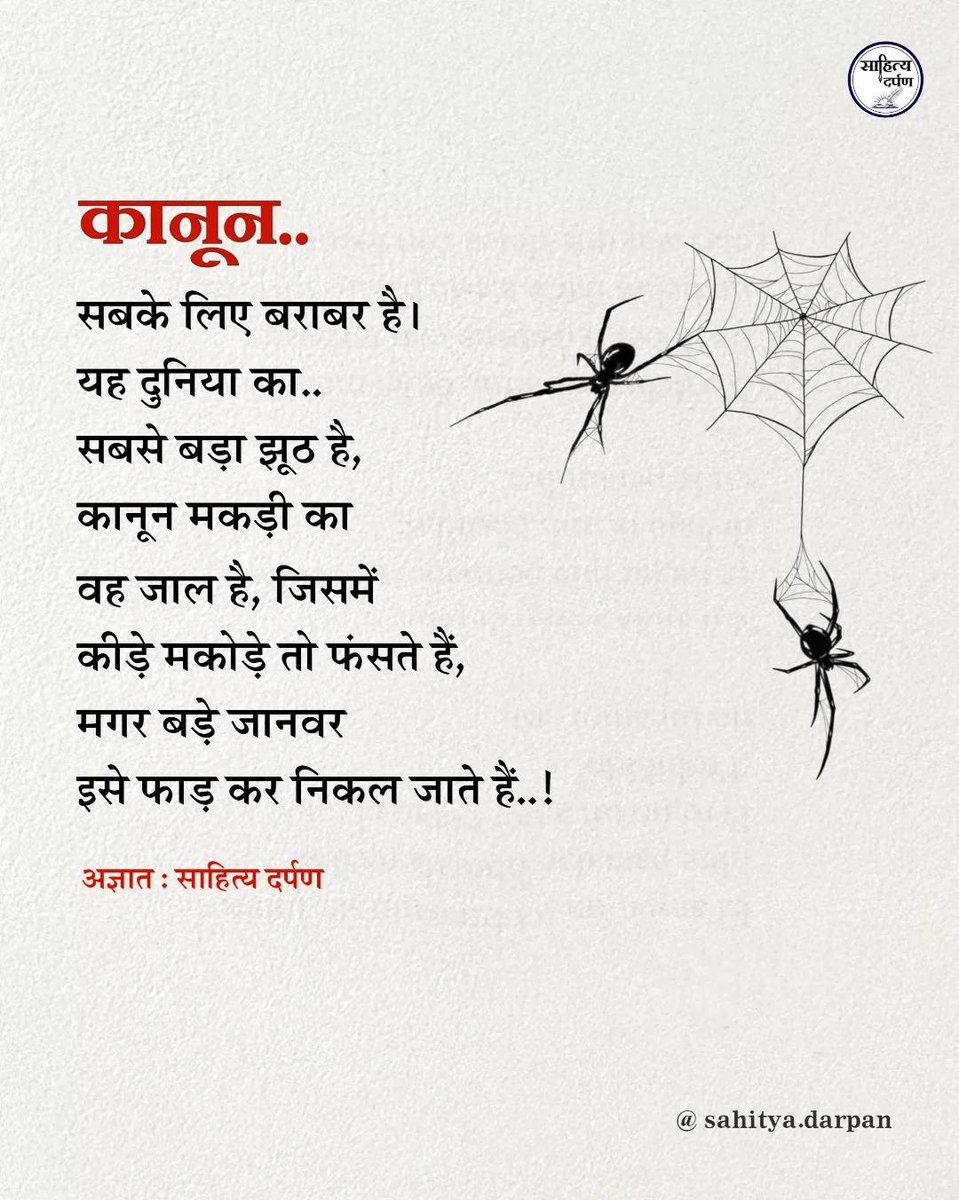 साहित्य
दर्पण
कानून..
सबके लिए बराबर है।
यह दुनिया का..
सबसे बड़ा झूठ है,
कानून मकड़ी का
वह जाल है, जिसमें
कीड़े मकोड़े तो फंसते हैं,
मगर बड़े जानवर
इसे फाड़ कर निकल जाते हैं..!
अज्ञात : साहित्य दर्पण
@ sahitya.darpan